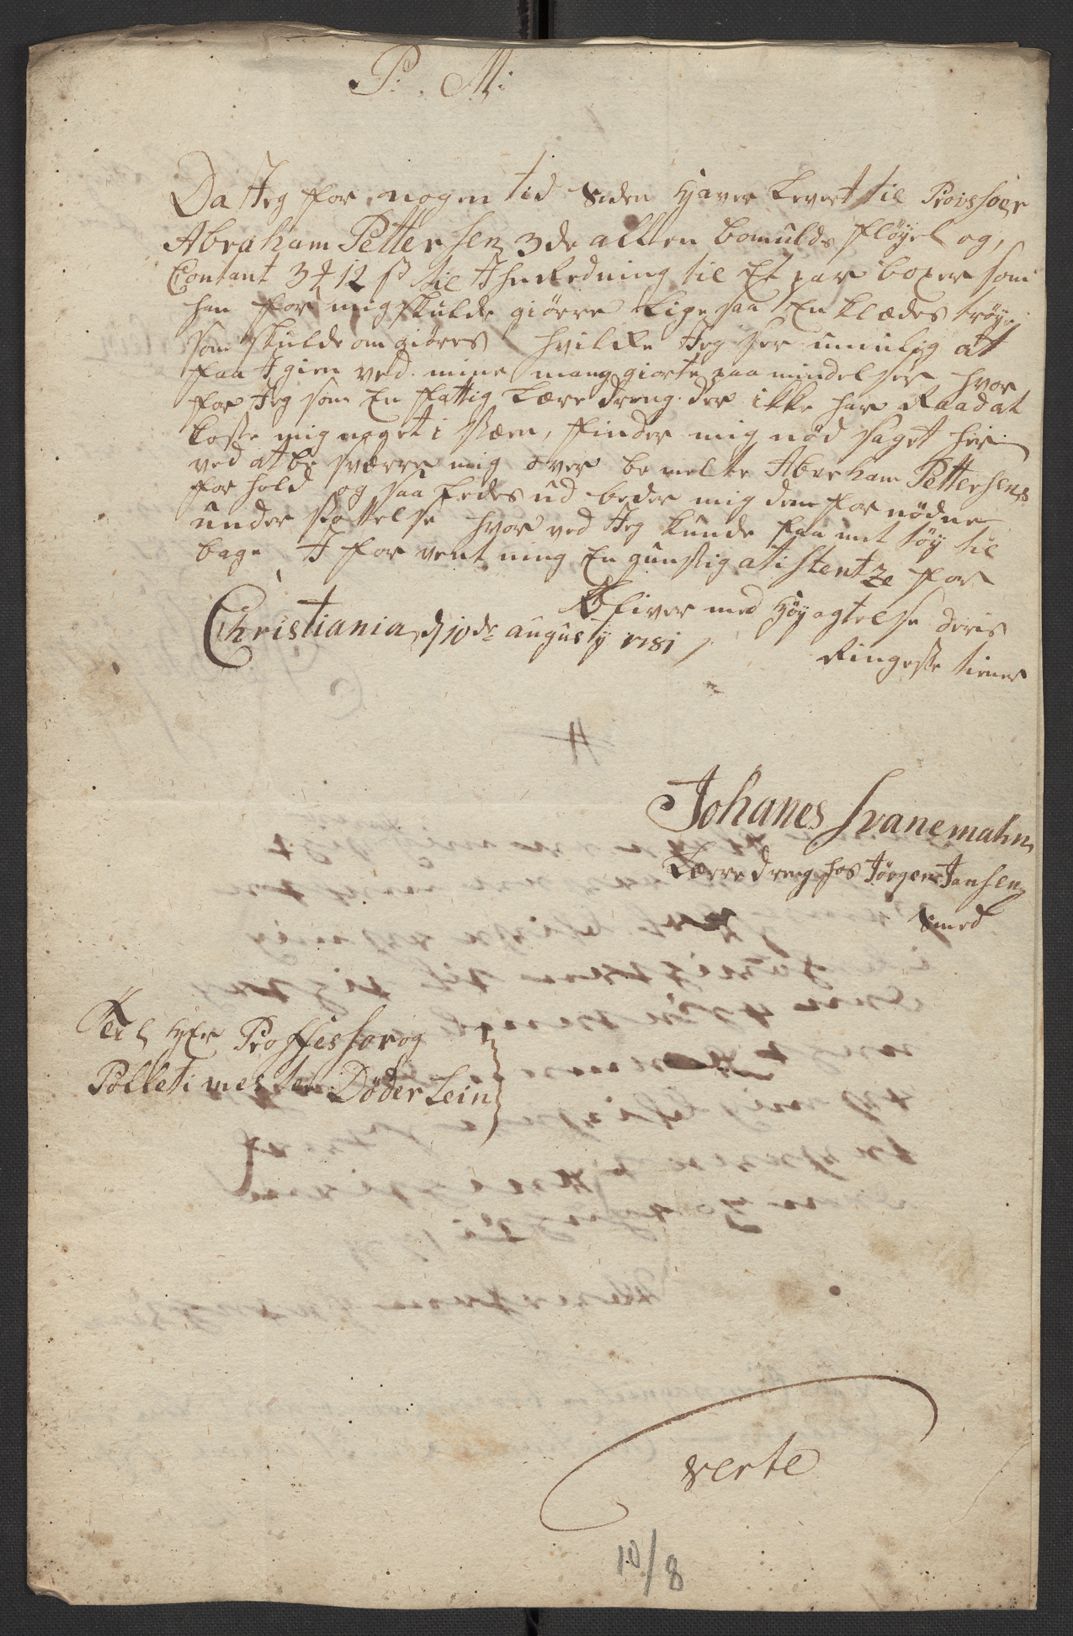 P: M:
Da Jeg for nogen tid siden haver levert til
Abraham Pettersen 3de allen bomulds fløyel og,
Contant 3 12 ß til Ihnredning til Et par boxer som
han for mig skulde giørre lige saa En klædes trøye
som skulde omgiøres hvilke Jeg ser umulig at
faa Igien ved mine mang giorte paamindelser, hvor
for Jeg som En fattig Lære dreng der ikke har Raad at
koste mig noget i, finder mig nød saget her
ved at be sværre mig over be melte Abraham Pettersens
for hold og saa ledes ud beder mig dem for nødne
under støttelse hvor ved Jeg kunde faa mit tøy til
bage I for vent ning En gunstig atistentze for
bliver med Høy agtelse deris
Christiania d 10de augusty 1781 /
Ringeste tiener
Johanes Svanemahn
Lærre dreng hos Jørgen Jansen
smed
Hr Proffessor og
Polletimester Døderlein
verte
10/8